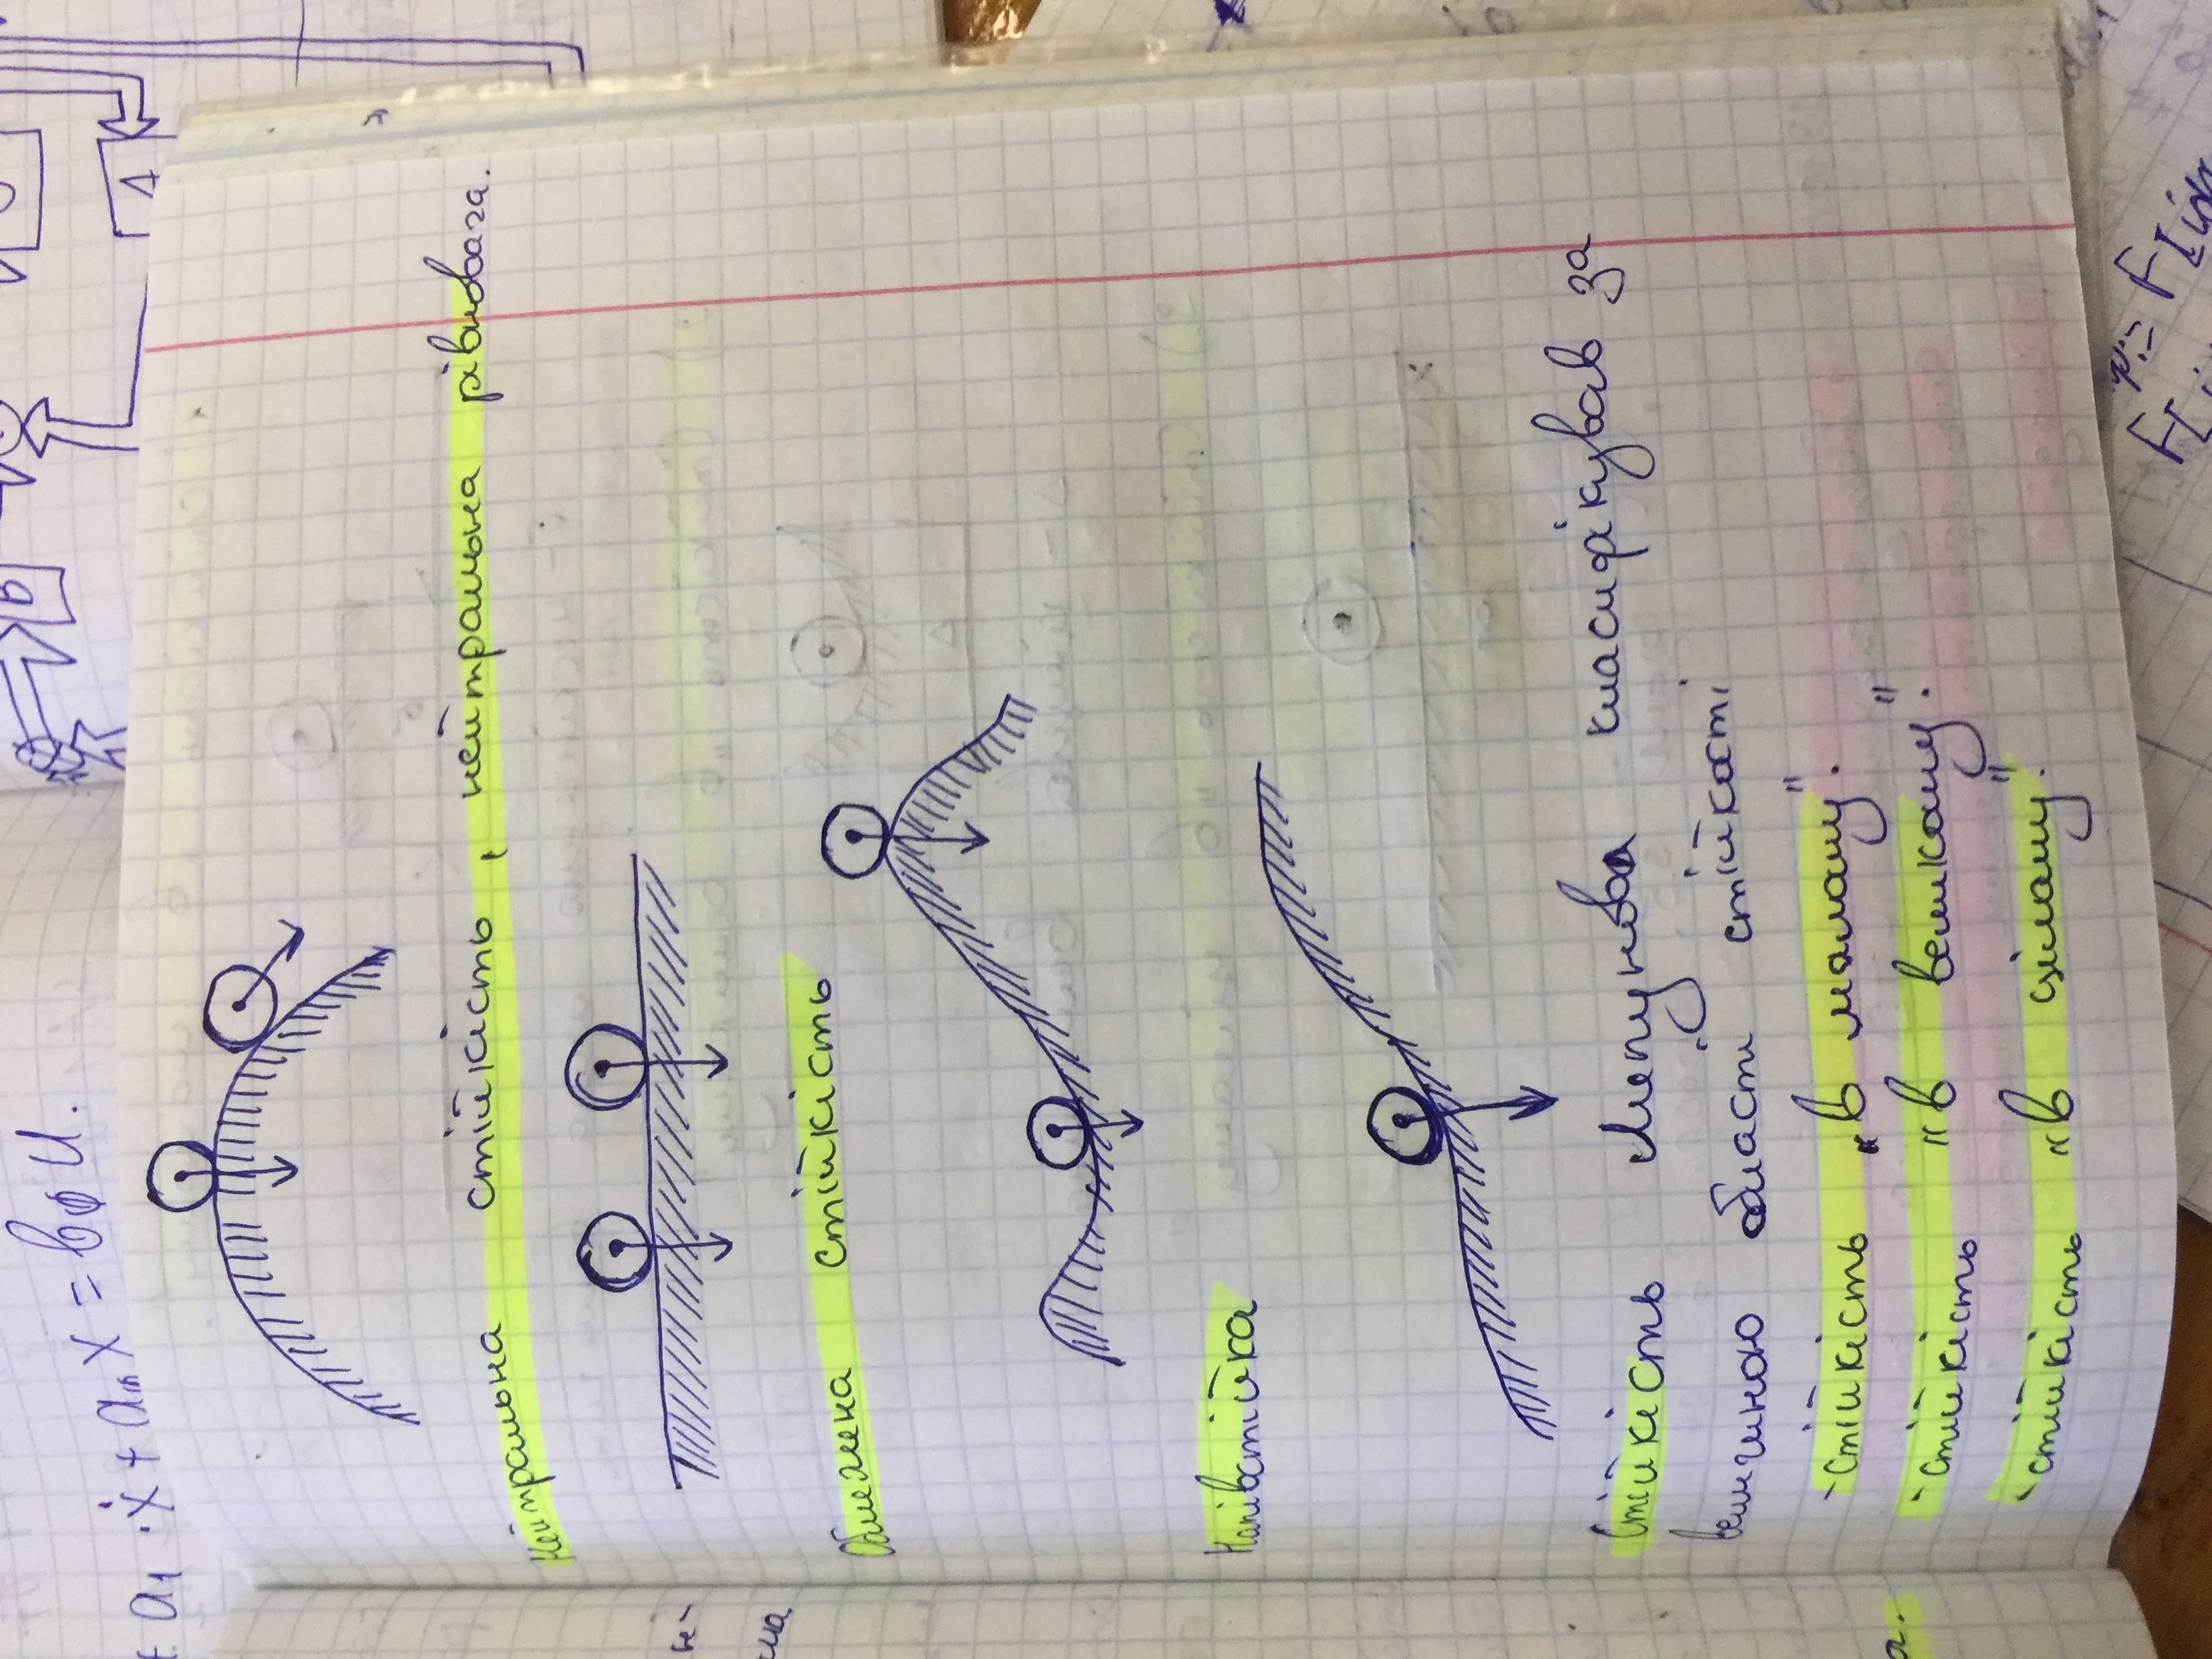 + a₁ · ẋ + aₘ x = b₀ u.
B
A
Нейтральна стійкість, нейтральна рівновага.
Обмежена стійкість
Напівстійка
Стійкість Ляпунова класифікував за
величиною області стійкості
- стійкість „в малому".
- стійкість "в великому".
- стійкість "в цілому".